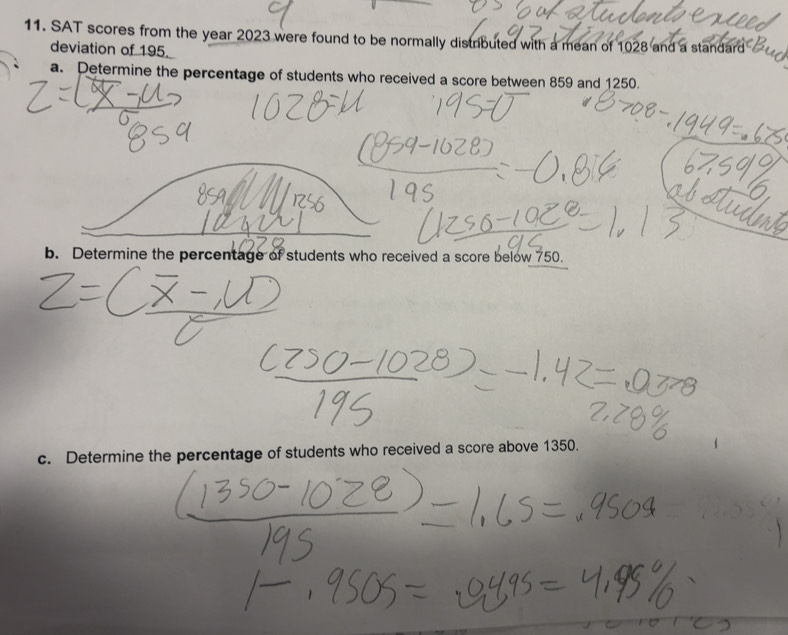 out students exceed
11. SAT scores from the year 2023 were found to be normally distributed with a mean of 1028 and a standard
deviation of 195.
a. Determine the percentage of students who received a score between 859 and 1250.
Z=(x̄-μ)
σ
859
1028=μ
195=σ
.8708-.1949=.6759
(859-1028)
195
=-0.86
67.59%
of students
859
1256
1028
(1250-1028
195
=1.13
b. Determine the percentage of students who received a score below 750.
Z=(x̄-μ)
σ
(750-1028)
195
=-1.42=.0778
7.78%
c. Determine the percentage of students who received a score above 1350.
(1350-1028)
195
=1.65=.9505
1-.9505=.0495=4.95%